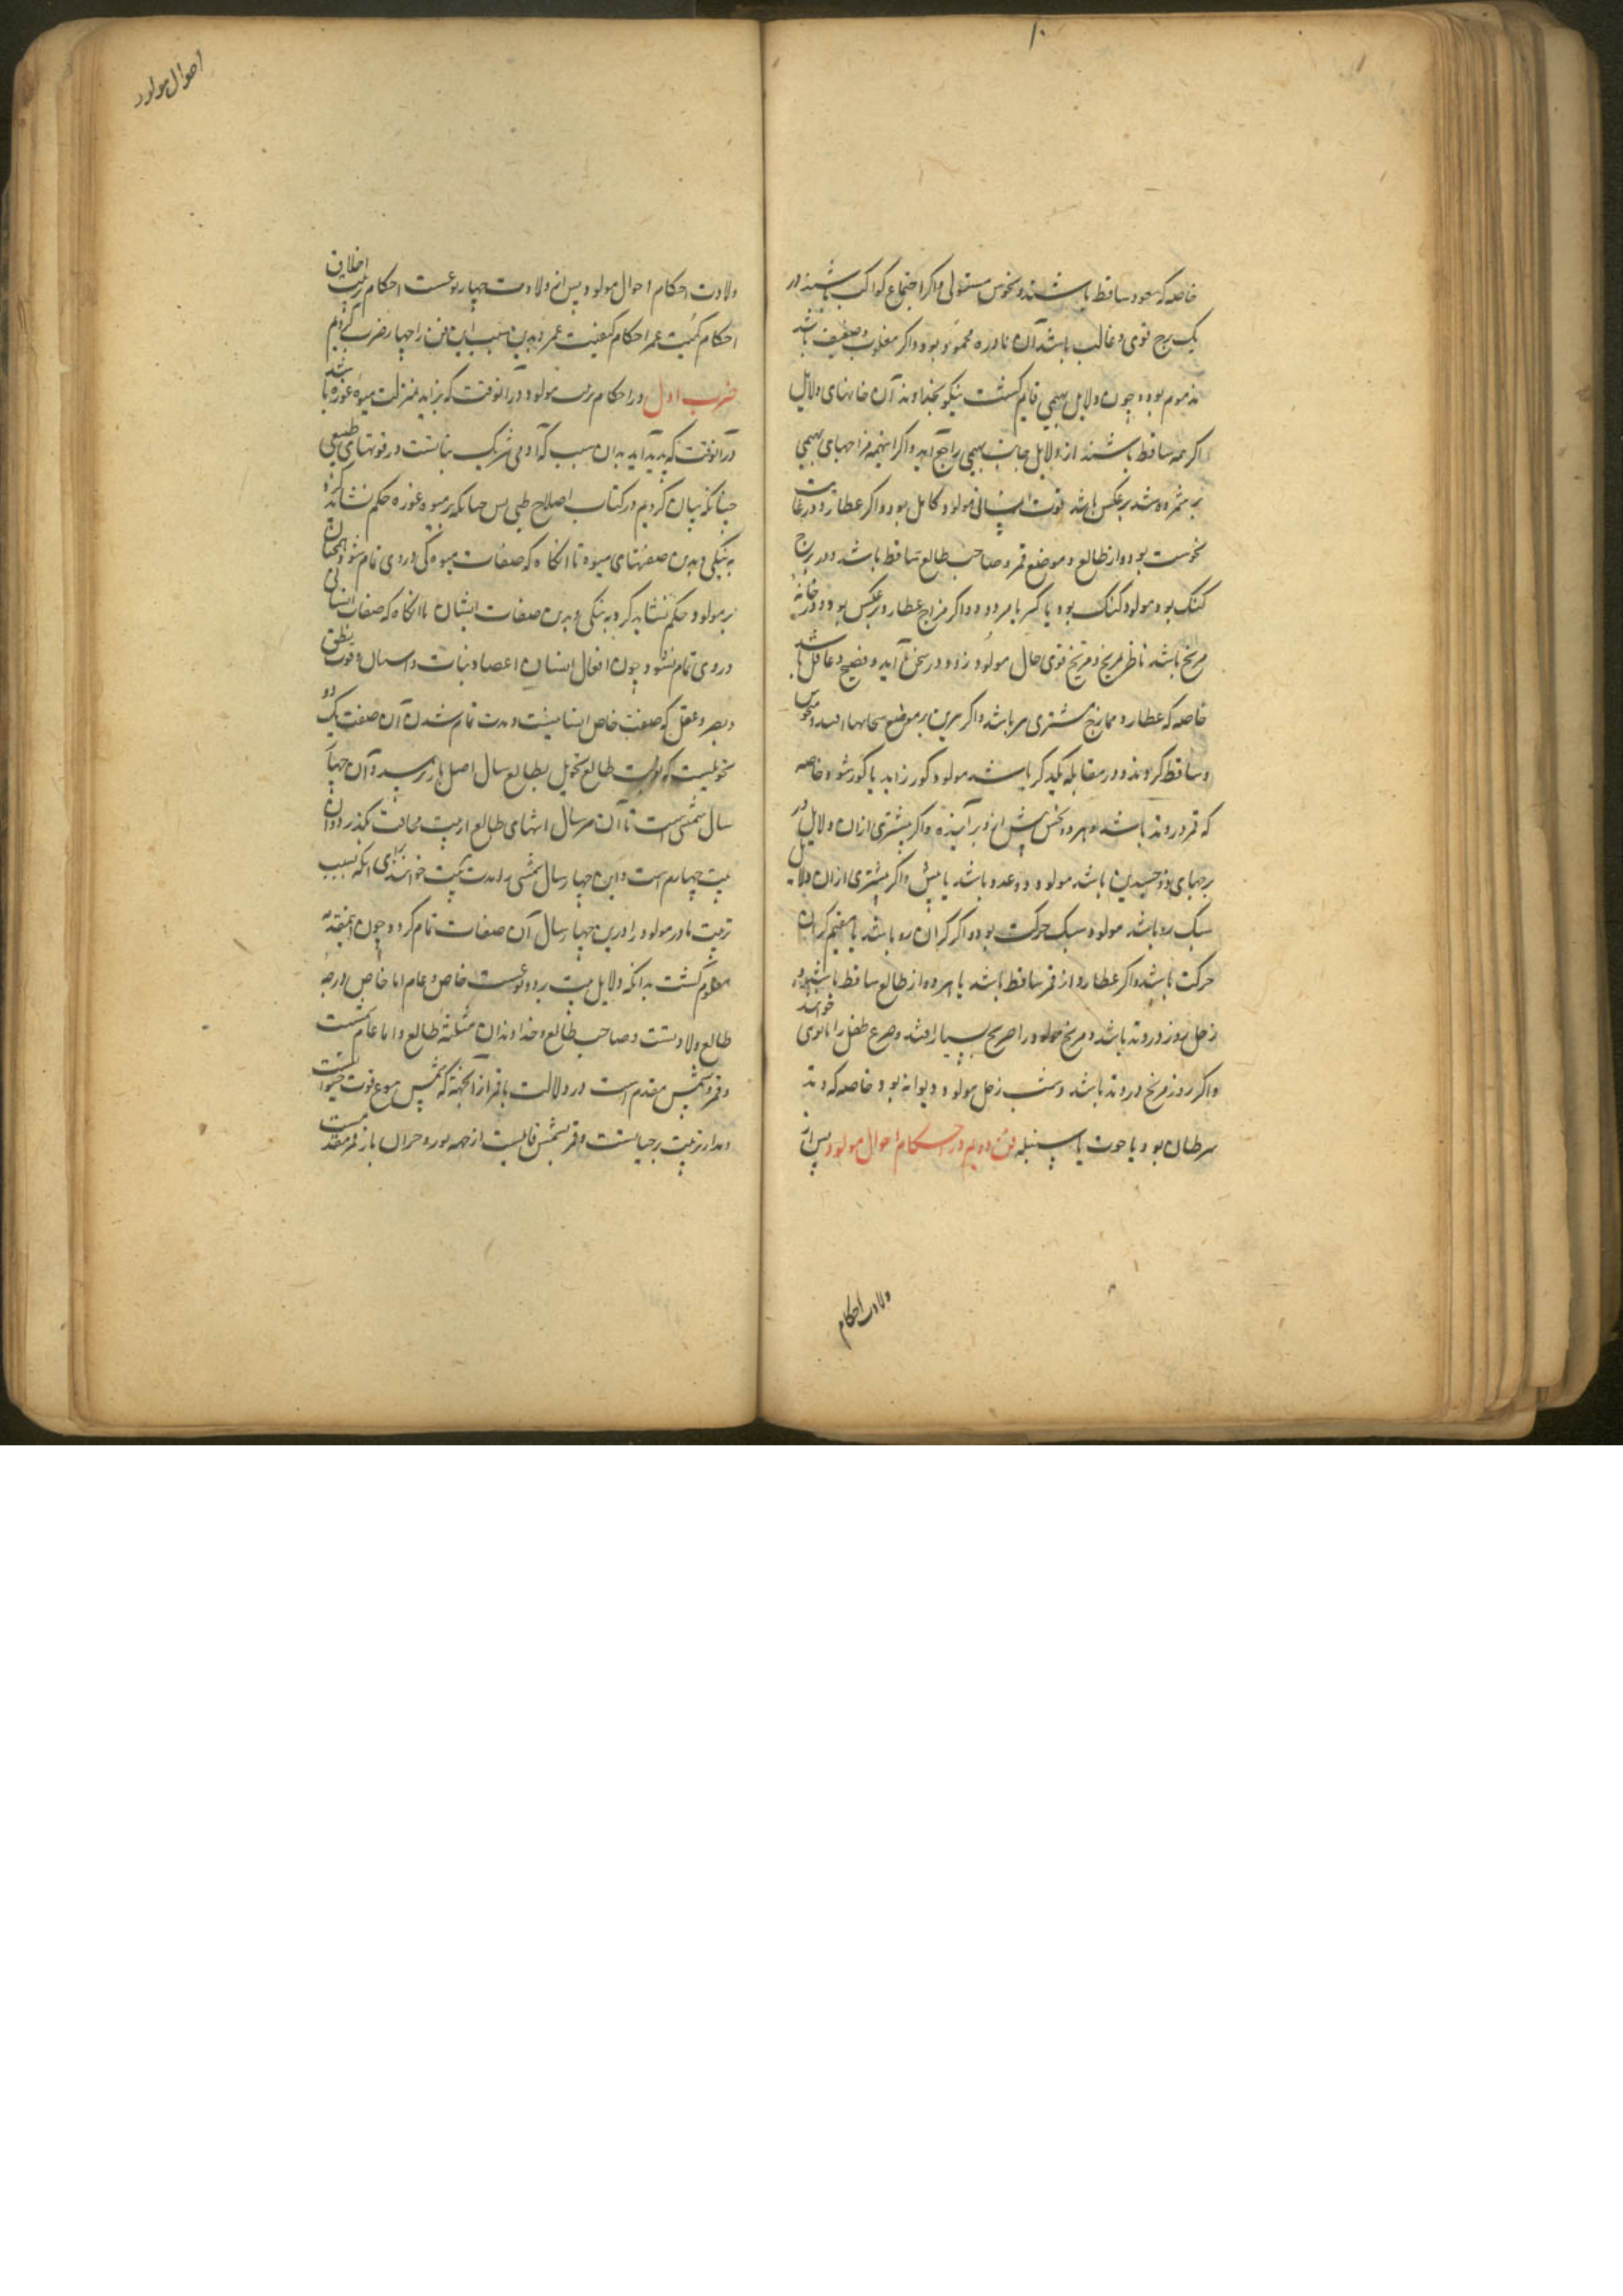 ۱۰
خاصه که سعود ساقط باشند و نحوس مستولی و اگر اجتماع کواکب باشند در
یک برج قوی و غالب باشد آن نادره محمود بود و اگر مغلوب و ضعیف باشد
مذموم بود و چون دلایل بهیمی قایم کشت نیکو بخداوند آن خانهای دلایل
اگر همه ساقط باشند از دلایل جانب بهیمی راجح آید و اگر اینهمه مزاجهای بهیمی
بر شمرده شد بر عکس باشد قوت انسانی مولود کامل بود و اگر عطارد در غایت
نحوست بود و از طالع و موضع قمر و صاحب طالع ساقط باشد و در برج
کنک بود مولود کنک بود یا کر یا هر دو و اگر مزاج عطارد بر عکس بود و در خانهٔ
مریخ باشد ناظر مریخ و مریخ قوی حال مولود زود در سخن آید و فصیح و عاقل باشد
خاصه که عطارد ممازج مشتری باشد و اگر نیرین بر موضع سحابها افتند و منحوس
و ساقط کردند و در مقابله یکدیگر باشند مولود کور زاید یا کور شود خاصه
که قمر در وتد باشد و هر دو نحس پیش از و بر آینده و اگر بیشتری از آن دلایل در
برجهای دو جسدین باشد مولود دو عدد باشد یا بیش و اگر بیشتری از آن دلایل
سبک رو باشد مولود سبک حرکت بود و اگر کران رو باشد یا مقیم کران
حرکت باشد و اگر عطارد از قمر ساقط باشد یا هر دو از طالع ساقط باشند و
زحل بروز در وتد باشد و مریخ مولود را صرع بسیار افتد و صرع طفل را خوانند
و اگر روز مریخ در وتد باشد و شب زحل مولود دیوانه بود خاصه که وتد
سرطان بود یا حوت یا سنبله فن دویم در احکام احوال مولود پس از
ولادت احکام
احوال مولود
ولادت احکام احوال مولود پس از ولادت چهار نوعست احکام تربیت اخلاق
احکام کمیت عمر احکام کیفیت عمر و بدین سبب این فن را چهار ضرب کردیم
ضرب اول در احکام تربیت مولود در آنوقت که بزاید بمنزلت میوهٔ غوره باشد
در آنوقت که پدید آید بدان سبب که آدمی شریک نباتست در قوتهای طبیعی
چنانکه بیان کردیم در کتاب اصلاح طبی پس چنانکه بر میوه غوره حکم نشاید کرد
به نیکی و بدی صفتهای میوه تا آنکاه که صفات میوه کی در وی تمام شود همچنان
بر مولود حکم نشاید کرد به نیکی و بدی صفات ایشان تا آنکاه که صفات انسانی
در وی تمام نشود و چون افعال انسان اعضا و نبات و اسنان و قوت نطق
و بصر و عقل که صفت خاص انسانیست و مدت تمام شدن آن صفت یک دو
نحویست که نوبت طالع تحویل بطالع سال اصل باز رسد و آن چهار
سال شمسی است تا آن هر سال انتهای طالع از بیت مخالفت بگذرد و آن
بیت چهارم است و این چهار سال شمسی را مدت تربیت خوانند برای آنکه بسبب
تربیت مادر مولود را درین چهار سال آن صفات تمام کردد چون اینمقدمه
معلوم کشت بدانکه دلایل تربیت بر دو نوعست خاص و عام اما خاص درجهٔ
طالع ولادتست و صاحب طالع و خداوندان مثلثهٔ طالع و اما عام شمس است
و قمر و شمس مقدم است در دلالت با قمر از آنجهة که شمس ینبوع قوت حیوانیست
و مدار تربیت بر حیاتست و قمر بشمس قایمست از جهه نور و حرارت باز قمر مقدمست